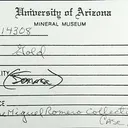 University of Arizona
MINERAL MUSEUM
14308
Gold
LITY (Sonora)
Miguel Romero Collect
Case